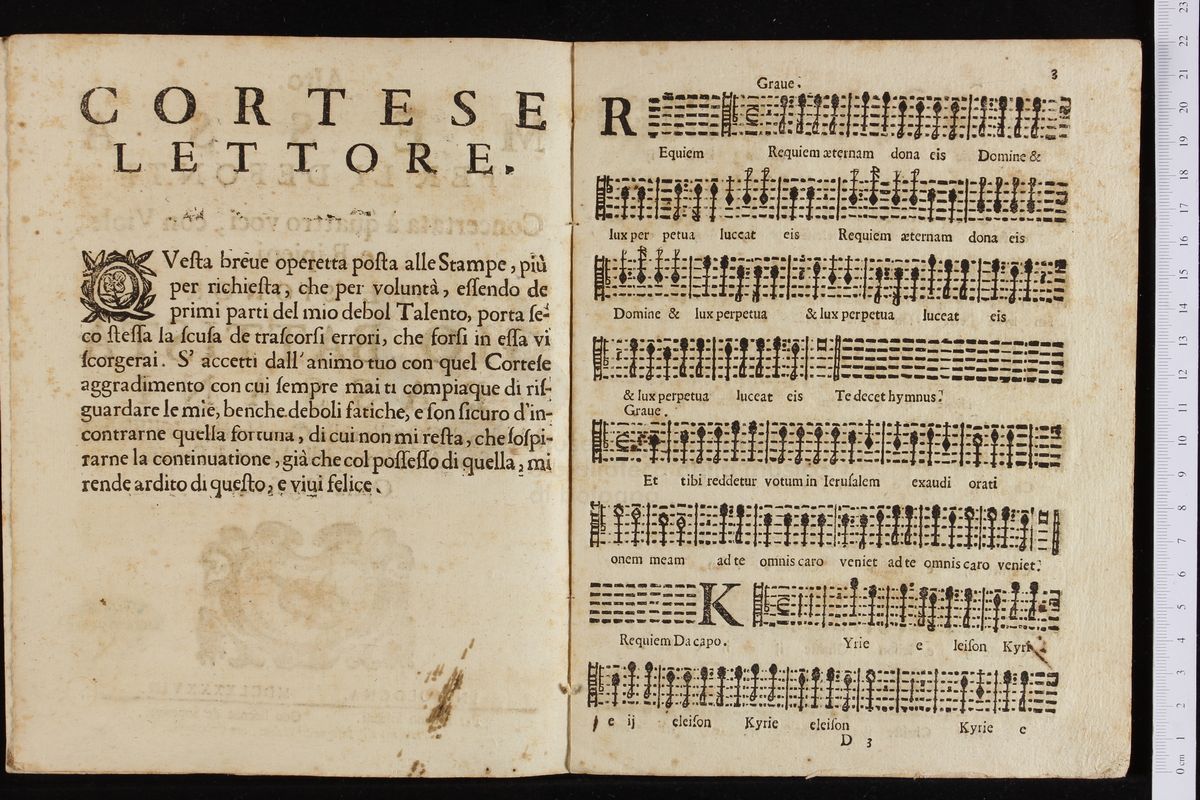 CORTESE
LETTORE.
QVesta breue operetta posta alle Stampe, più
per richiesta, che per voluntà, essendo de
primi parti del mio debol Talento, porta se-
co stessa la scusa de trascorsi errori, che forsi in essa vi
scorgerai. S' accetti dall'animo tuo con quel Cortese
aggradimento con cui sempre mai ti compiaque di ris-
guardare le mie, benche deboli fatiche, e son sicuro d'in-
contrarne quella fortuna, di cui non mi resta, che sospi-
rarne la continuatione, già che col possesso di quella, mi
rende ardito di questo, e viui felice.
3
Graue.
REquiem Requiem æternam dona eis Domine &
lux per petua luceat eis Requiem æternam dona eis
Domine & lux perpetua & lux perpetua luceat eis
& lux perpetua luceat eis Te decet hymnus.
Graue.
Et tibi reddetur votum in Ierusalem exaudi orati
onem meam ad te omnis caro veniet ad te omnis caro veniet.
Requiem Da capo. KYrie e leison Kyri
e ij eleison Kyrie eleison Kyrie e
D 3